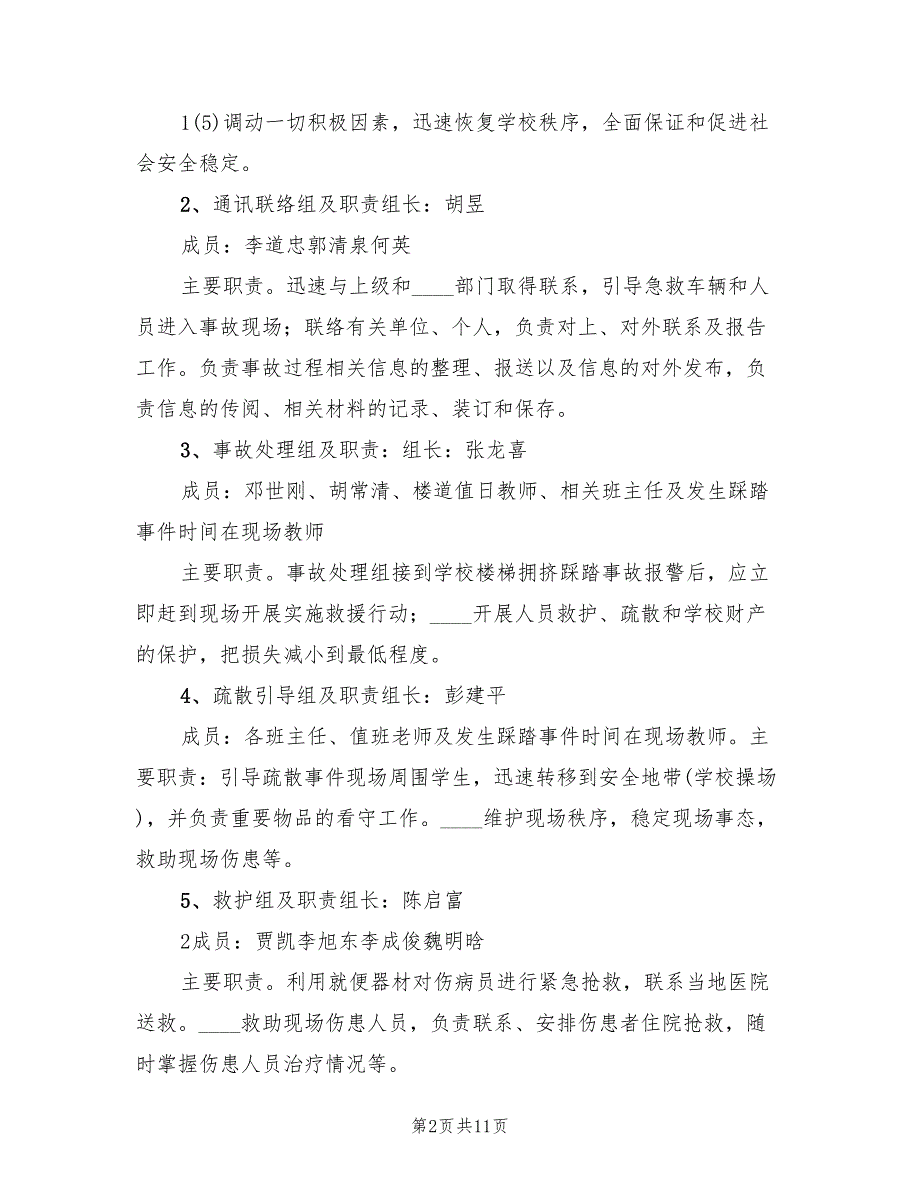 1(5)调动一切积极因素，迅速恢复学校秩序，全面保证和促进社
会安全稳定。
2、通讯联络组及职责组长：胡昱
成员：李道忠郭清泉何英
主要职责。迅速与上级和____部门取得联系，引导急救车辆和人
员进入事故现场；联络有关单位、个人，负责对上、对外联系及报告
工作。负责事故过程相关信息的整理、报送以及信息的对外发布，负
责信息的传阅、相关材料的记录、装订和保存。
3、事故处理组及职责：组长：张龙喜
成员：邓世刚、胡常清、楼道值日教师、相关班主任及发生踩踏
事件时间在现场教师
主要职责。事故处理组接到学校楼梯拥挤踩踏事故报警后，应立
即赶到现场开展实施救援行动；____开展人员救护、疏散和学校财产
的保护，把损失减小到最低程度。
4、疏散引导组及职责组长：彭建平
成员：各班主任、值班老师及发生踩踏事件时间在现场教师。主
要职责：引导疏散事件现场周围学生，迅速转移到安全地带(学校操场
)，并负责重要物品的看守工作。____维护现场秩序，稳定现场事态，
救助现场伤患等。
5、救护组及职责组长：陈启富
2成员：贾凯李旭东李成俊魏明晗
主要职责。利用就便器材对伤病员进行紧急抢救，联系当地医院
送救。____救助现场伤患人员，负责联系、安排伤患者住院抢救，随
时掌握伤患人员治疗情况等。
第2页共11页